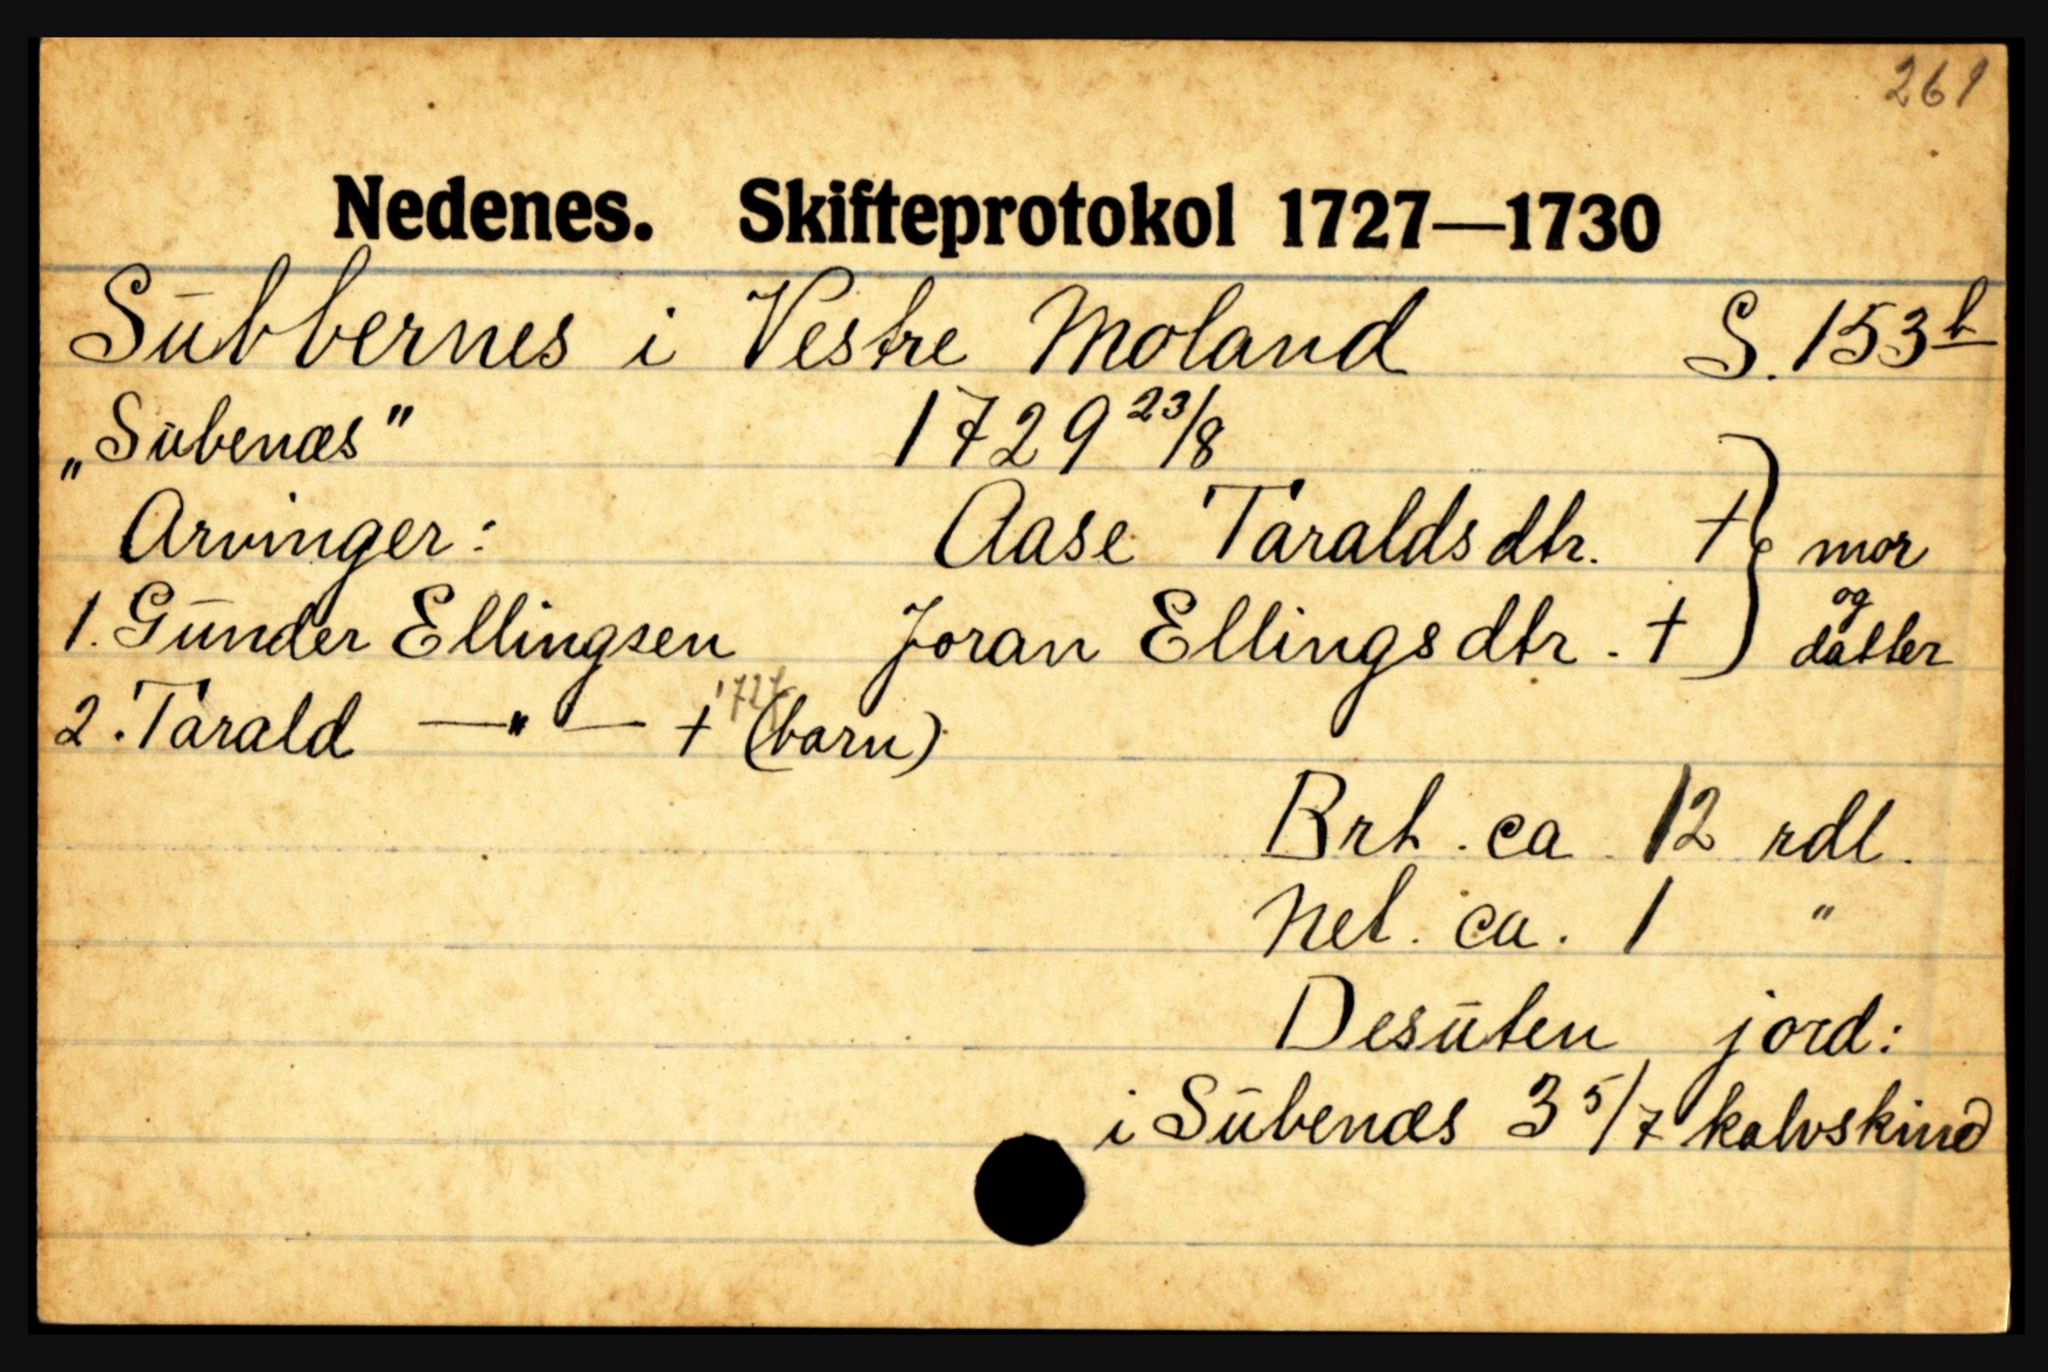 261
Nedenes. Skifteprotokol 1727—1730
Sūbbernes i Vestre Moland S. 153b
„Sūbenæs" 1729 23/8
Arvinger: Aase Taraldsdtr. † } mor
1. Gūnder Ellingsen Joran Ellingsdtr. † og datter
2. Tarald —"— † 1727 (barn)
Brt. ca 12 rdl.
Net. ca. 1 "
Desūten jord:
i Sūbenæs 3 5/7 kalvskind